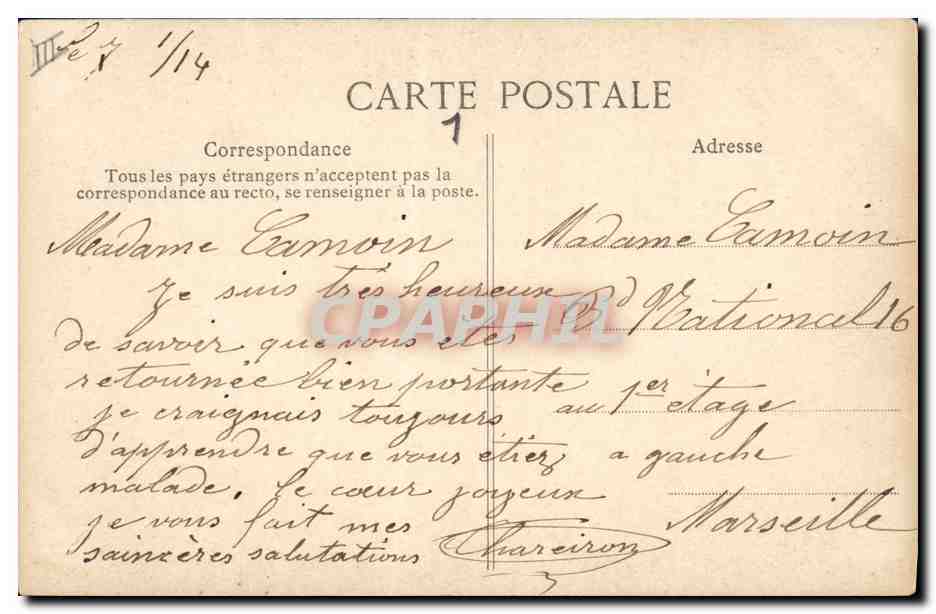 III
Le 7 1/14
CARTE POSTALE
1
Correspondance
Tous les pays étrangers n'acceptent pas la
correspondance au recto, se renseigner à la poste.
Madame Camoin
Je suis très heureux
de savoir que vous etes
retournée bien portante
je craignais toujours
d'apprendre que vous étiez
malade. le cœur joyeux
je vous fait mes
saincères salutations
Chareiron
Adresse
Madame Camoin
Bd National 16
au 1er étage
a gauche
Marseille
CPAPHIL